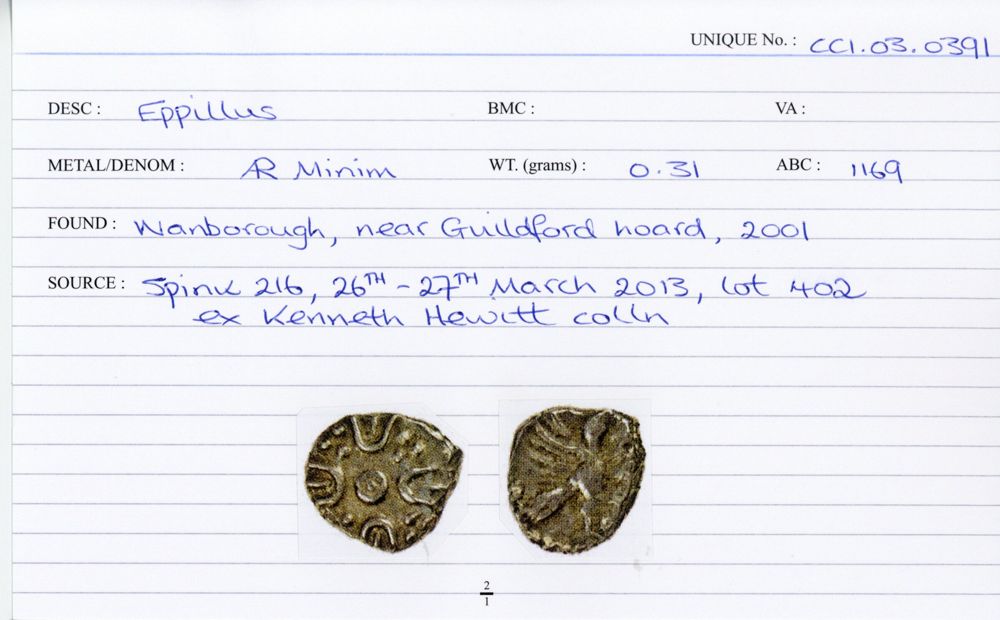 UNIQUE No. : CCI.03.0391
DESC : Eppillus BMC : VA :
METAL/DENOM : AR Minim WT. (grams) : 0.31 ABC : 1169
FOUND : Wanborough, near Guildford hoard, 2001
SOURCE : Spink 216, 26TH - 27TH March 2013, lot 402
ex Kenneth Hewitt colln
2
1